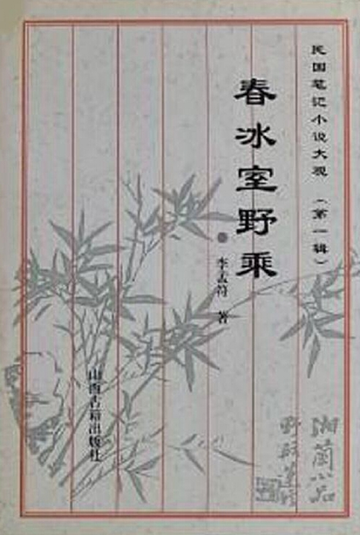 民国笔记小说大观（第一辑）
春冰室野乘
李孟符 著
山西古籍出版社
湘蘭小品